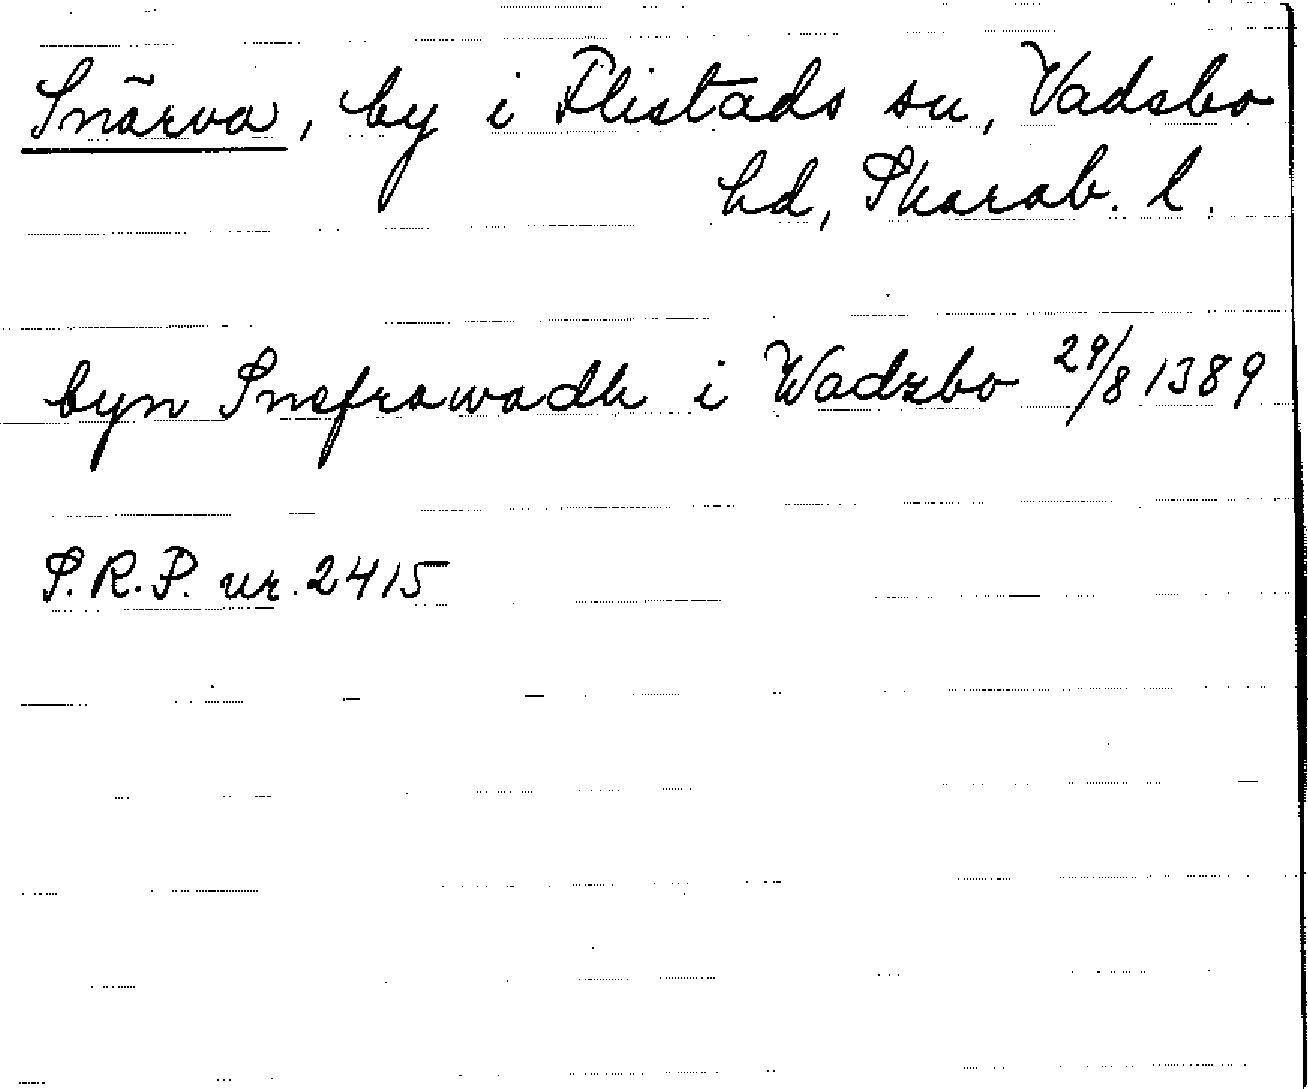 Snärva, by i Flistads sn, Vadsbo
hd, Skarab. l.
byn Snefrawadh i Wadzbo 29/8 1389
S.R.P. nr. 2415